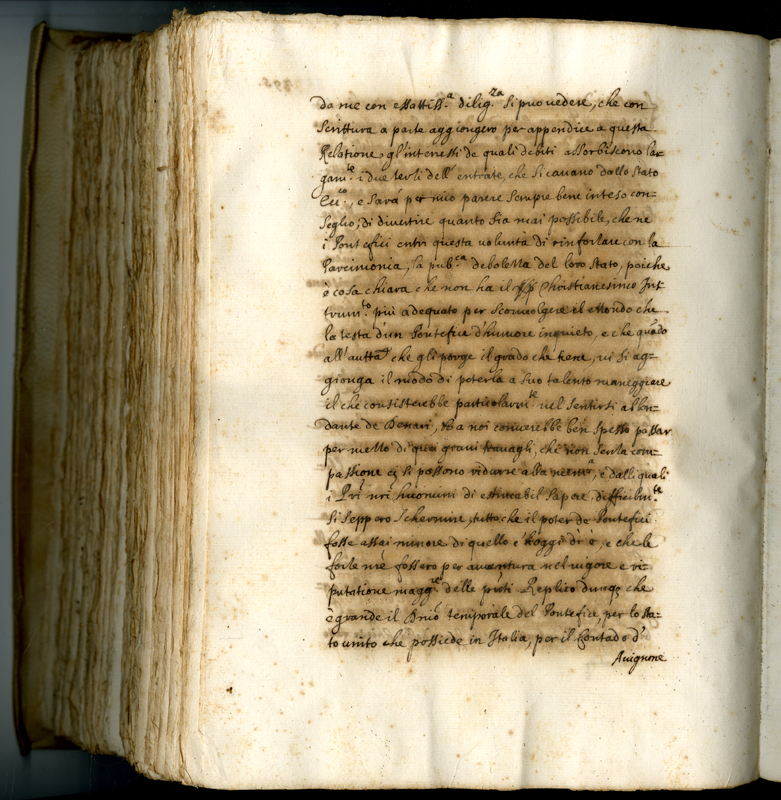 da me con esattiss.ª dilig.za si può vedere, che con
scrittura a parte aggiongerò per appendice a questa
Relatione gl'interessi de quali debiti assorbiscono lar-
gam.te i due terzi dell'entrate, che si cauano dallo Stato
Ecc.co, e sarà per mio parere sempre bene inteso con-
seglio, di diuertire quanto sia mai possibile, che ne
i Pontefici entri questa uoluntà di rinforzare con la
Parcimonia, la pub.ca debolezza del loro stato, poiche
è cosa chiara che non ha il Christianesimo Ist-
trum.to più adequato per sconuolgere il Mondo che
la testa d'un Pontefice d'humore inquieto, e che quãdo
all'autta che gli porge il grado che tiene, ui si ag-
gionga il modo di poterla a suo talento maneggiare
il che consisterebbe particolarm.te nel sentirsi abbon-
dante de Denari, a noi conuerebbe ben spesso passar
per mezzo di quei graui trauagli, che non senza com-
passione ci si possono ridurre alla mem.a, e dalli quali
i Pri nri huomini di estimabil sapere, difficilm.te
si seppero schermire, tutto che il poter de Pontefici
fosse assai minore di quello c'hoggi dì è, e che le
forze nre fossero per auuentura nel uigore e ri-
putatione magg.re delle pnti Replico dunq; che
è grande il Dnio temporale del Pontefice, per lo sta-
to unito che possiede in Italia, per il Contado d'
Auignone